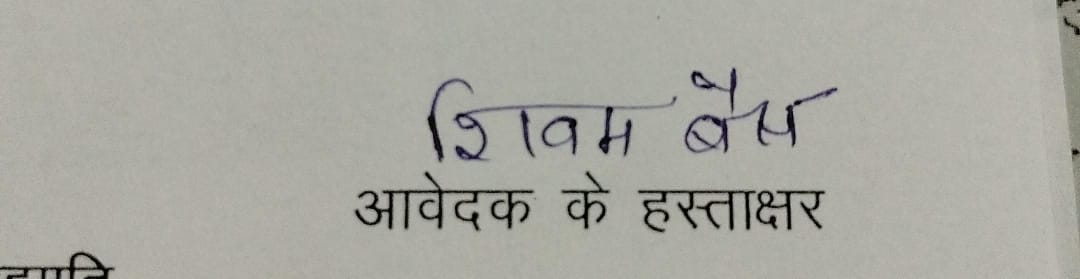 शिवम बैस
आवेदक के हस्ताक्षर